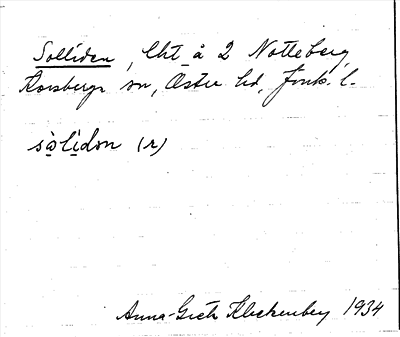 Solliden, lht å 2 Notteberg,
Korsberga sn, Östra hd, Jönk. l.
sòlìdon (r)
Anna-Greta Kleckenberg 1934